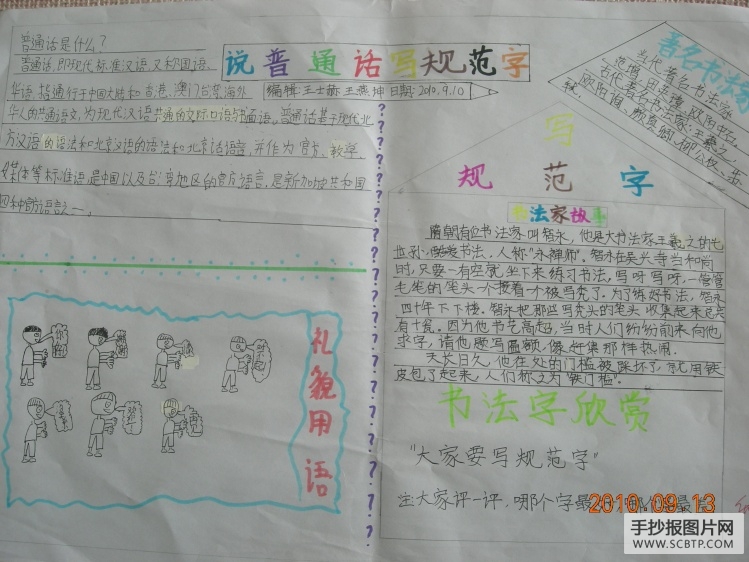 说普通话写规范字
编辑:王士茹 王燕坤 日期:2010.9.10
普通话是什么?
普通话,即现代标准汉语,又称国语、
华语,指通行于中国大陆和香港、澳门台湾、海外
华人的共通语文,为现代汉语共通的交际口语与书面语。普通话基于现代北
方汉语的语法和北京汉语的语法和北京话语音,并作为官方、教学、
媒体等标准语,是中国以及台湾地区的官方语言,是新加坡共和国
四种官方语言之一。
礼貌用语
著名书法家
当代著名书法家
古代著名书法家:王羲之、
欧阳询、颜真卿、柳公权、苏
轼。
写
规范字
书法家故事
隋朝有位书法家叫智永,他是大书法家王羲之的七
世孙,酷爱书法,人称“永禅师”。智永在吴兴寺当和尚
时,只要一有空就坐下来练习书法,写呀写呀,一管管
毛笔的笔头一个接着一个被写秃了。为了练好书法,智永
四十年不下楼。智永把那些写秃头的笔头收集起来足足
有十瓮。因为他书艺高超,当时人们纷纷前来向他
求字,请他题写匾额,像赶集那样热闹。
天长日久,他在处的门槛被踩坏了,就用铁
皮包了起来,人们称之为“铁门槛”。
书法字欣赏
“大家要写规范字”
注大家评一评,哪个字最
2010.09.13
手抄报图片网
WWW.SCBTP.COM